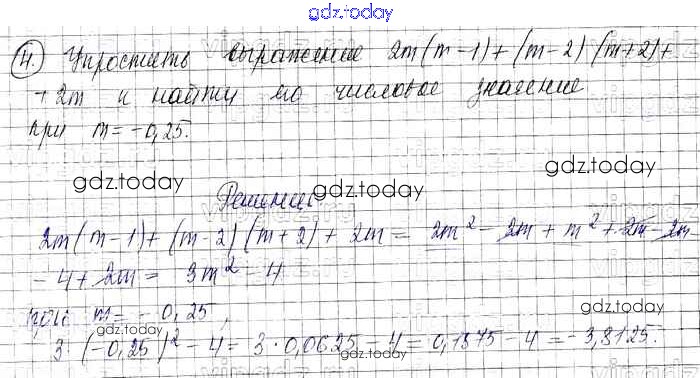 gdz.today
4. Упростить выражение 2m(m-1)+(m-2)(m+2)+
+2m и найти его числовое значение
при m=-0,25.
gdz.today gdz.today gdz.today
Решение
2m(m-1)+(m-2)(m+2)+2m= 2m²-2m+m²+2m-2m
-4+2m= 3m²-4
при m=-0,25,
gdz.today
3·(-0,25)²-4= 3·0,0625-4=0,1875-4=-3,8125.
gdz.today